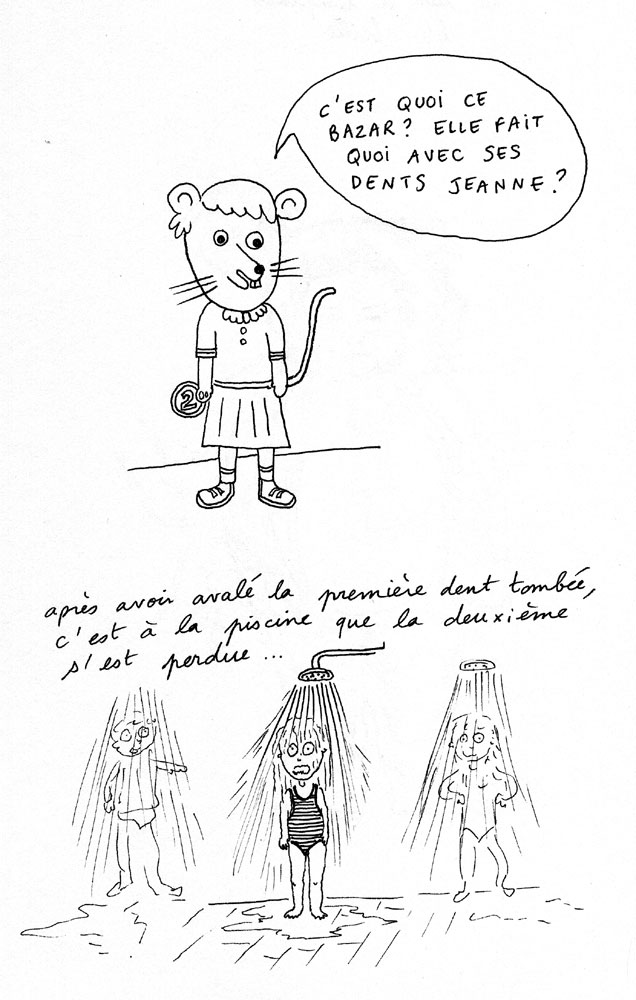 C'EST QUOI CE
BAZAR? ELLE FAIT
QUOI AVEC SES
DENTS JEANNE?
2
après avoir avalé la première dent tombée,
c'est à la piscine que la deuxième
s'est perdue ...